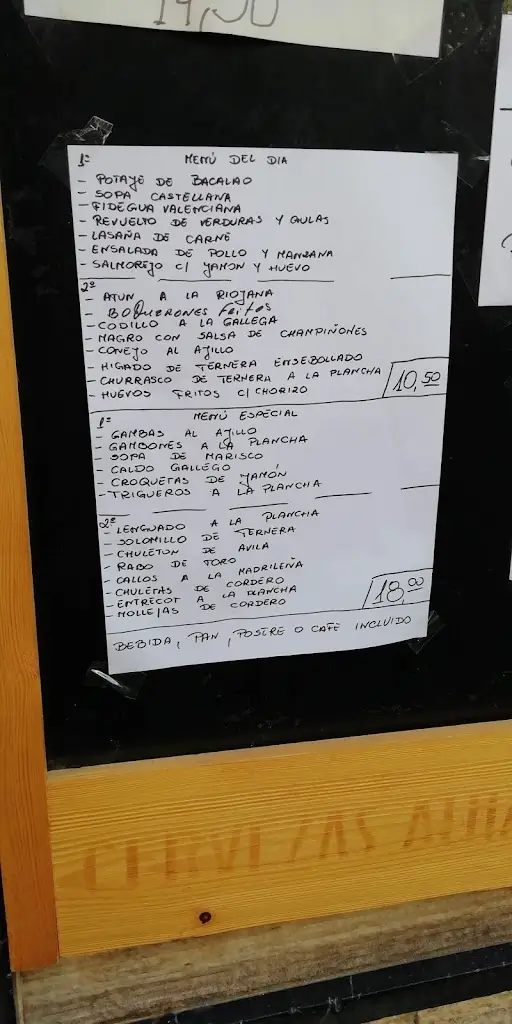 1º MENÚ DEL DIA
- POTAJE DE BACALAO
- SOPA CASTELLANA
- FIDEGUA VALENCIANA
- REVUELTO DE VERDURAS Y GULAS
- LASAÑA DE CARNE
- ENSALADA DE POLLO Y MANZANA
- SALMOREJO C/ JAMON Y HUEVO
2º
- ATUN A LA RIOJANA
- BOQUERONES FRITOS
- CODILLO A LA GALLEGA
- MAGRO CON SALSA DE CHAMPIÑONES
- CONEJO AL AJILLO
- HIGADO DE TERNERA ENSEBOLLADO
- CHURRASCO DE TERNERA A LA PLANCHA
- HUEVOS FRITOS C/ CHORIZO
10,50
1º MENÚ ESPECIAL
- GAMBAS AL AJILLO
- GAMBONES A LA PLANCHA
- SOPA DE MARISCO
- CALDO GALLEGO
- CROQUETAS DE JAMÓN
- TRIGUEROS A LA PLANCHA
2º
- LENGUADO A LA PLANCHA
- SOLOMILLO DE TERNERA
- CHULETON DE AVILA
- RABO DE TORO
- CALLOS A LA MADRILEÑA
- CHULETAS DE CORDERO
- ENTRECOT A LA PLANCHA
- MOLLEJAS DE CORDERO
18,00
BEBIDA, PAN, POSTRE O CAFE INCLUIDO
CERVEZAS